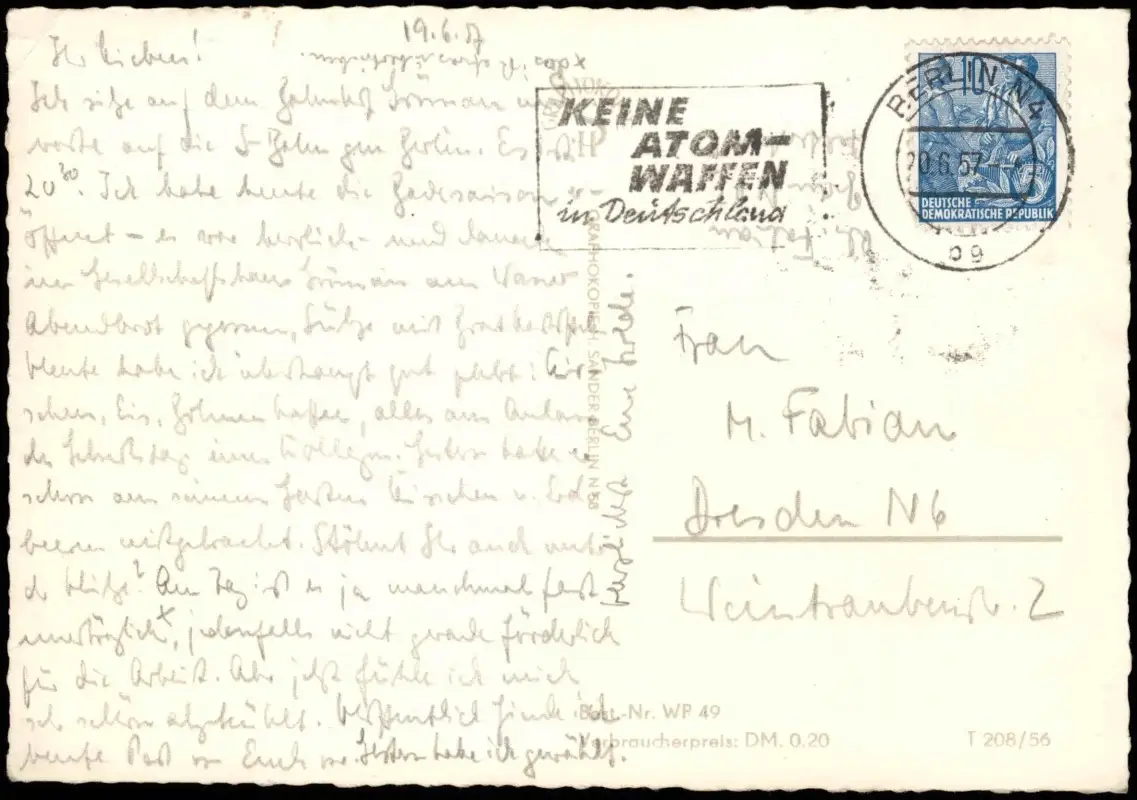 19.6.57
Ihr Lieben!
Ich sitze auf dem Bahnhof Grünau und
warte auf die S-Bahn gen Berlin. Es ist
20³⁰. Ich habe heute die Badesaison er-
öffnet – es war herrlich – und danach
im Gesellschaftshaus Grünau am Wasser
Abendbrot gegessen, Sülze mit Bratkartoffeln
Heute habe ich überhaupt gut gelebt: Kir-
schen, Eis, Bohnenkaffee, alles am Anlass
des Geburtstags eines Kollegen. Gestern hatte er
schon aus seinem Garten Kirschen u. Erd-
beeren mitgebracht. Stöhnt Ihr auch unter
der Hitze? Am Tag ist es ja manchmal fast
unerträglich x, jedenfalls nicht gerade förderlich
für die Arbeit. Aber jetzt fühle ich mich
sehr schön abgekühlt. Hoffentlich finde ich
heute Post von Euch vor. Gestern habe ich gewählt.
Herzlichst Eure Isolde.
x das ist etwas übertrieben.
KEINE
ATOM-
WAFFEN
in Deutschland
BERLIN N4
20.6.57
bg
10
DEUTSCHE
DEMOKRATISCHE REPUBLIK
Fabian
GRAPHOKOPIE H. SANDER BERLIN N 58
Frau
M. Fabian
Dresden N6
Weintraubenstr. 2
Best.-Nr. WP 49
Verbraucherpreis: DM. 0.20
T 208/56